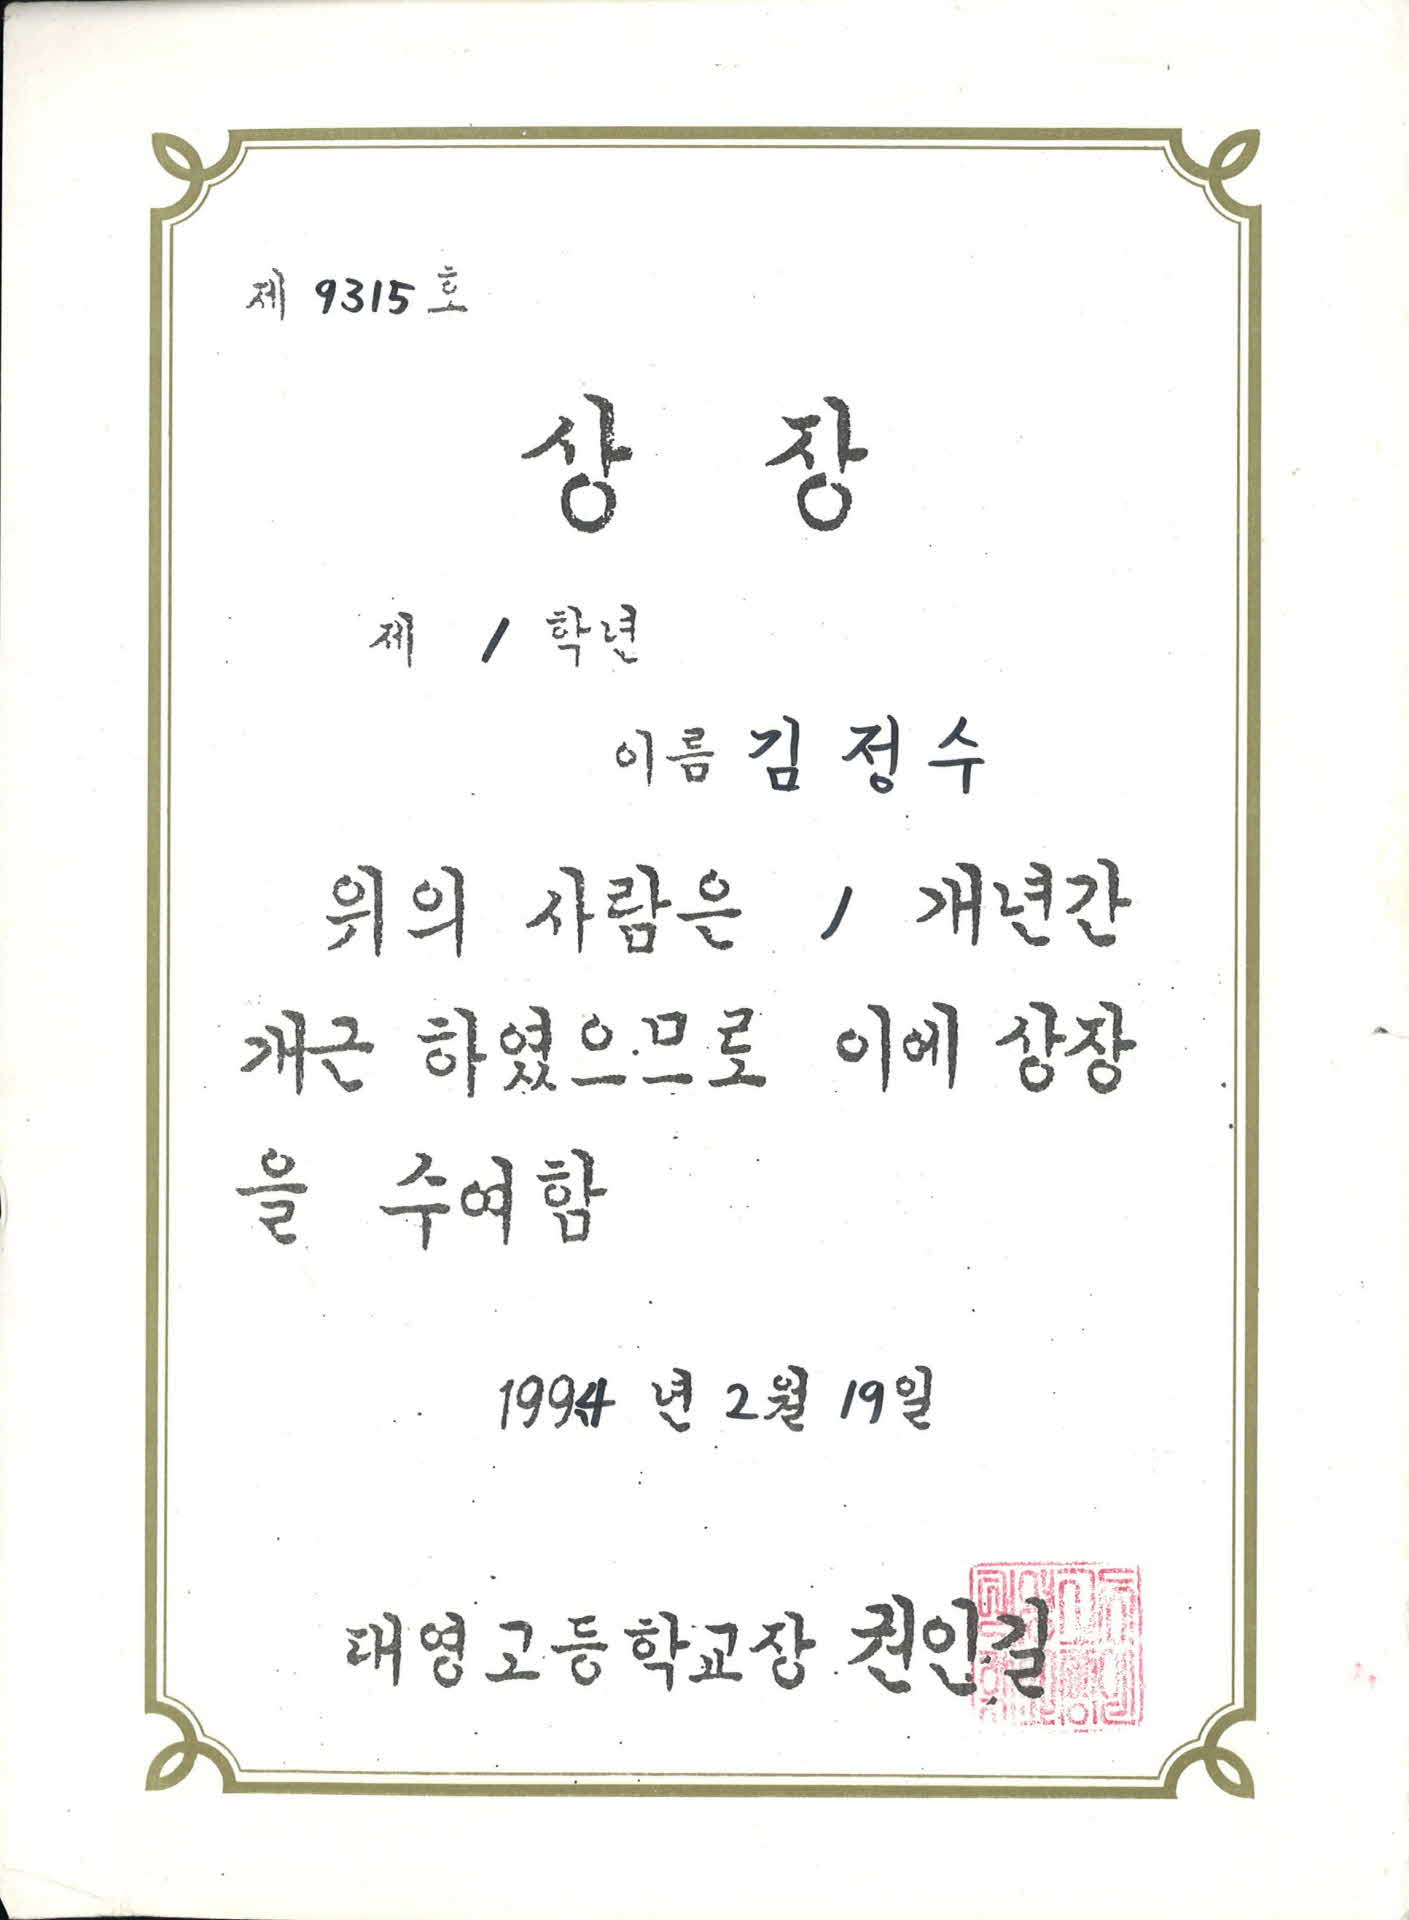 제 9315 호
상 장
제 1 학년
이름 김 정 수
위의 사람은 1 개년간
개근 하였으므로 이에 상장
을 수여함
1994 년 2월 19일
태영고등학교장 권인길